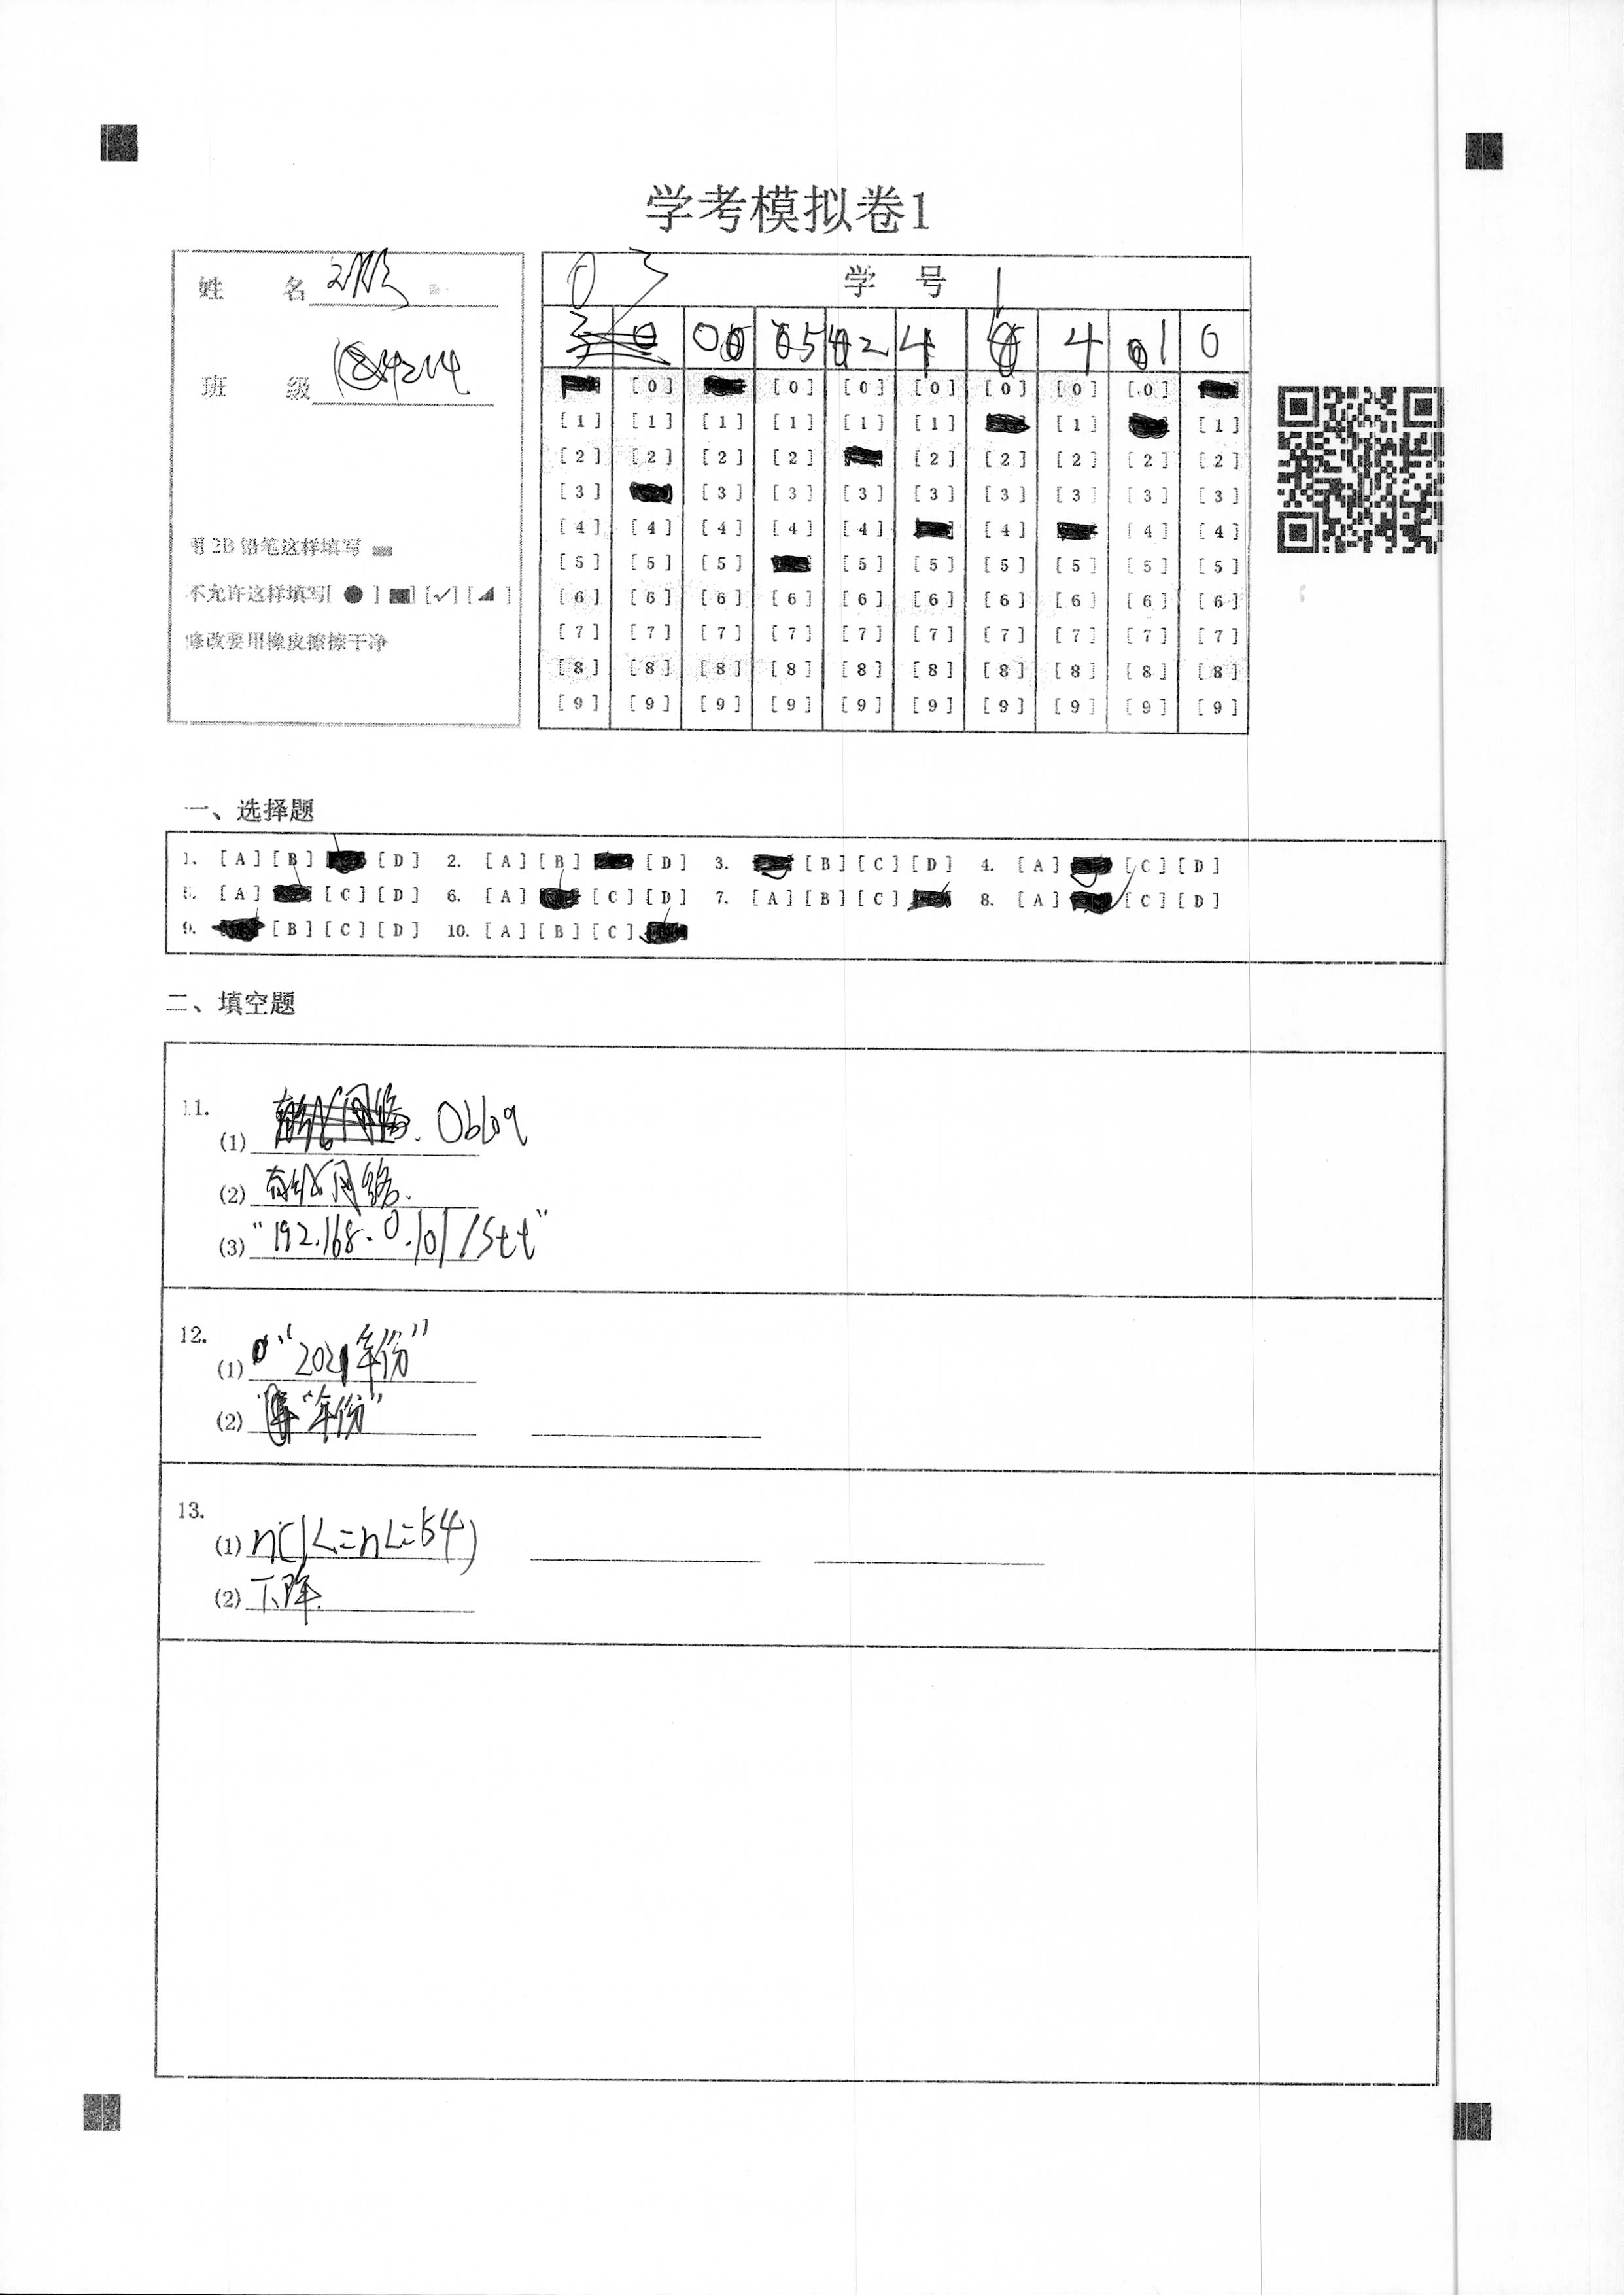 学考模拟卷1
姓 名
班 级
用2B铅笔这样填写
不允许这样填写[ ● ] [■] [✓] [◢ ]
修改要用橡皮擦擦干净
0 3 学 号 1
0 5 2 4 4 1 0
[0] [0] [0] [0] [0] [0] [0]
[1] [1] [1] [1] [1] [1] [1] [1]
[2] [2] [2] [2] [2] [2] [2] [2] [2]
[3] [3] [3] [3] [3] [3] [3] [3] [3]
[4] [4] [4] [4] [4] [4] [4] [4]
[5] [5] [5] [5] [5] [5] [5] [5] [5]
[6] [6] [6] [6] [6] [6] [6] [6] [6] [6]
[7] [7] [7] [7] [7] [7] [7] [7] [7] [7]
[8] [8] [8] [8] [8] [8] [8] [8] [8] [8]
[9] [9] [9] [9] [9] [9] [9] [9] [9] [9]
一、选择题
1. [A] [B] [D] 2. [A] [B] [D] 3. [B] [C] [D] 4. [A] [C] [D]
5. [A] [C] [D] 6. [A] [C] [D] 7. [A] [B] [C] 8. [A] [C] [D]
9. [B] [C] [D] 10. [A] [B] [C]
二、填空题
11.
(1) Obloq
(2) 有线网络.
(3) "192.168.0.101/Stt"
12.
(1) "2021年份"
(2) "年份"
13.
(1) n(1<=n<=54)
(2) 下降.